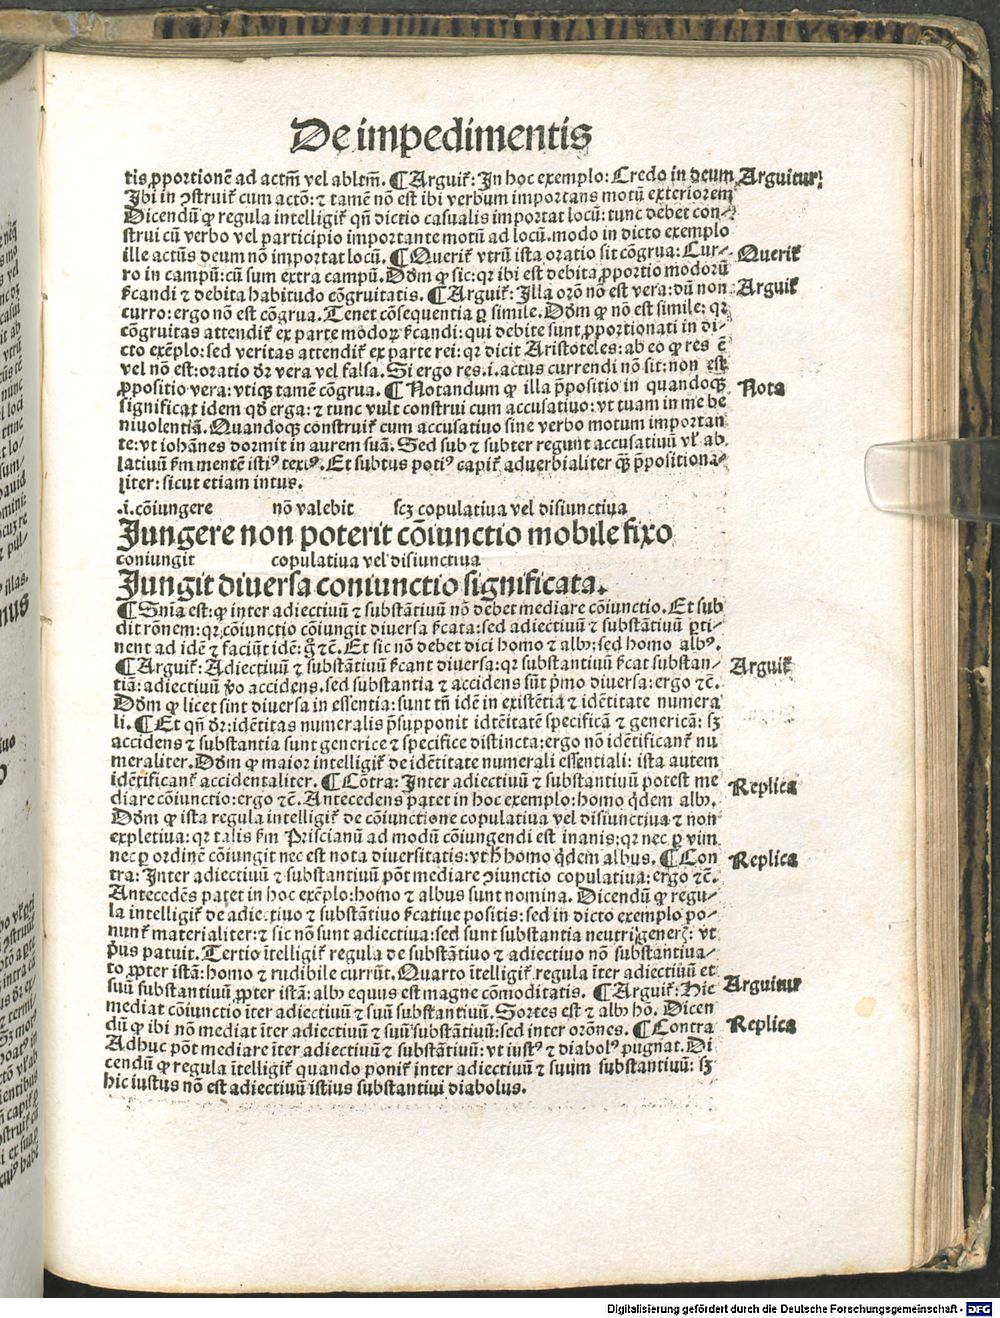 De impedimentis
tis ꝓportionē ad actm̄ vel abltm̄. ¶ Arguit᷑: In hoc exemplo: Credo in deum Arguitur:
Ibi in ꝯstruit᷑ cum actō: ⁊ tamē nō est ibi verbum importans motū exteriorem
Dicendū ꝙ regula intelligit᷑ qn̄ dictio casualis importat locū: tunc debet con-
strui cū verbo vel participio importante motū ad locū. modo in dicto exemplo
ille actiūs deum nō importat locū. ¶ Querit᷑ vtrū ista oratio sit cōgrua: Cur- Querit᷑
ro in campū: cū sum extra campū. Dōm ꝙ sic: qr ibi est debita ꝓportio modorū
ẜcandi ⁊ debita habitudo cōgruitatis. ¶ Arguit᷑: Illa orō nō est vera: dū non Arguit᷑
curro: ergo nō est cōgrua. Tenet cōsequentia ꝑ simile. Dōm ꝙ nō est simile: qr
cōgruitas attendit᷑ ex parte modoꝝ ẜcandi: qui debite sunt ꝓportionati in di-
cto exēplo: sed veritas attendit᷑ ex parte rei: qr dicit Aristoteles: ab eo ꝙ res ē
vel nō est: oratio dr̄ vera vel falsa. Si ergo res .i. actus currendi nō sit: non est
ꝓpositio vera: vtiqꝫ tamē cōgrua. ¶ Notandum ꝙ illa p̄positio in quandoqꝫ Nota
significat idem qd̄ erga: ⁊ tunc vult construi cum accusatiuo: vt tuam in me be
niuolentiā. Quandoqꝫ construit᷑ cum accusatiuo sine verbo motum importan
te: vt iohānes dormit in aurem suā. Sed sub ⁊ subter regunt accusatiuū vl̓ ab
latiuū ẜm mentē istiꝰ textꝰ. Et subtus potiꝰ capit᷑ aduerbialiter qꝫ p̄positiona-
liter: sicut etiam intus.
.i. cōiungere nō valebit scꝫ copulatiua vel disiunctiua
Jungere non poterit cōiunctio mobile fixo
coniungit copulatiua vel disiunctiua
Jungit diuersa coniunctio significata.
¶ Snīa est: ꝙ inter adiectiuū ⁊ substātiuū nō debet mediare cōiunctio. Et sub
dit rōnem: qr cōiunctio cōiungit diuersa ẜcata: sed adiectiuū ⁊ substātiuū ꝑti-
nent ad idē ⁊ faciūt idē: g̊ ⁊c̄. Et sic nō debet dici homo ⁊ albꝰ: sed homo albꝰ.
¶ Arguit᷑: Adiectiuū ⁊ substātiuū ẜcant diuersa: qr substantiuū ẜcat substan- Arguit᷑
tiā: adiectiuū ꝟo accidens. sed substantia ⁊ accidens sūt p̄mo diuersa: ergo ⁊c̄.
Dōm ꝙ licet sint diuersa in essentia: sunt tn̄ idē in existētia ⁊ idētitate numera
li. ¶ Et qn̄ dr̄: idētitas numeralis p̄supponit idtēitatē specificā ⁊ genericā: sꝫ
accidens ⁊ substantia sunt generice ⁊ specifice distincta: ergo nō idētificant᷑ nu
meraliter. Dōm ꝙ maior intelligit᷑ de idētitate numerali essentiali: ista autem
idētificant᷑ accidentaliter. ¶ Cōtra: Inter adiectiuū ⁊ substantiuū potest me Replica
diare cōiunctio: ergo ⁊c̄. Antecedens patet in hoc exemplo: homo q̇dem albꝰ.
Dōm ꝙ ista regula intelligit᷑ de cōiunctione copulatiua vel disiunctiua ⁊ non
expletiua: qr talis ẜm Priscianū ad modū cōiungendi est inanis: qr nec ꝑ vim
nec ꝑ ordinē cōiungit nec est nota diuersitatis: vt h̄ homo q̇dem albus. ¶ Con Replica
tra: Inter adiectiuū ⁊ substantiuū pōt mediare ꝯiunctio copulatiua: ergo ⁊c̄.
Antecedēs patet in hoc exēplo: homo ⁊ albus sunt nomina. Dicendū ꝙ regu-
la intelligit᷑ de adiectiuo ⁊ substātiuo ẜcatiue positis: sed in dicto exemplo po-
nunt᷑ materialiter: ⁊ sic nō sunt adiectiua: sed sunt substantia neutri generꝭ: vt
p̄us patuit. Tertio ītelligit᷑ regula de substātiuo ⁊ adiectiuo nō substantiua-
to ꝓpter istā: homo ⁊ rudibile currūt. Quarto ītelligit᷑ regula īter adiectiuū et
suū substantiuū ꝓpter istā: albꝰ equus est magne cōmoditatis. ¶ Arguit᷑: Hic Arguitur
mediat cōiunctio īter adiectiuū ⁊ suū substantiuū. Sortes est ⁊ albꝰ hō. Dicen
dū ꝙ ibi nō mediat īter adiectiuū ⁊ suū substātiuū: sed inter orōnes. ¶ Contra Replica
Adhuc pōt mediare īter adiectiuū ⁊ substātiuū: vt iustꝰ ⁊ diabolꝰ pugnat. Di
cendū ꝙ regula ītelligit᷑ quando ponit᷑ inter adiectiuū ⁊ suum substantiuū: sꝫ
hic iustus nō est adiectiuū istius substantiui diabolus.
Digitalisierung gefördert durch die Deutsche Forschungsgemeinschaft - DFG